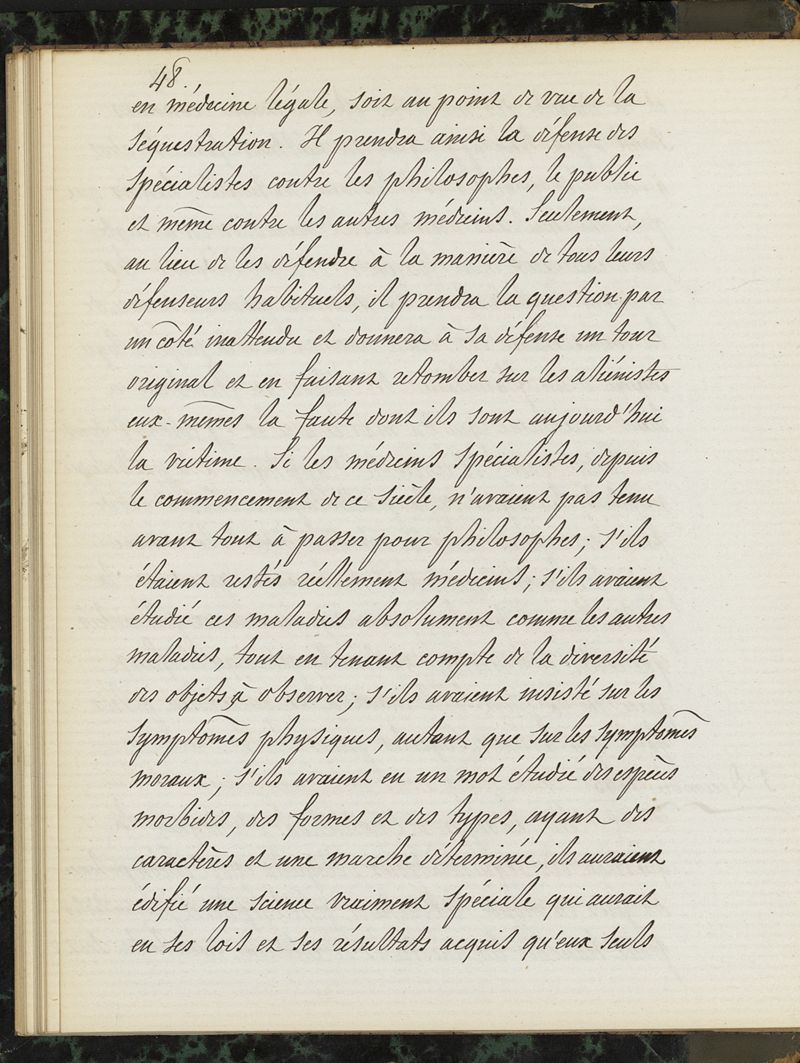 48.
en médecine légale, soit au point de vue de la
séquestration. Il prendra ainsi la défense des
spécialistes contre les philosophes, le public
et même contre les autres médecins. Seulement,
au lieu de les défendre à la manière de tous leurs
défenseurs habituels, il prendra la question par
un côté inattendu et donnera à sa défense un tour
original et en faisant retomber sur les aliénistes
eux-mêmes la faute dont ils sont aujourd'hui
la victime. Si les médecins spécialistes, depuis
le commencement de ce siècle, n'avaient pas tenu
avant tout à passer pour philosophes; s'ils
étaient restés réellement médecins; s'ils avaient
étudié ces maladies absolument comme les autres
maladies, tout en tenant compte de la diversité
des objets à observer; s'ils avaient insisté sur les
symptômes physiques, autant que sur les symptômes
moraux; s'ils avaient en un mot étudié des espèces
morbides, des formes et des types, ayant des
caractères et une marche déterminée, ils auraient
édifié une science vraiment spéciale qui aurait
eu ses lois et ses résultats acquis qu'eux seuls